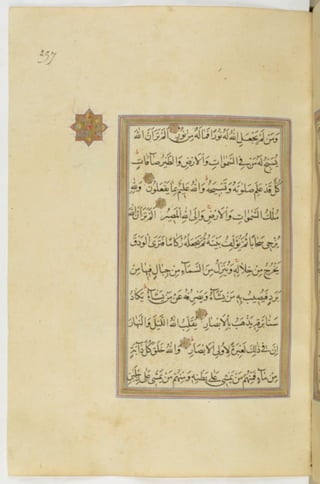 وَمَن لَّمْ يَجْعَلِ اللهُ لَهُ نُورًا فَمَا لَهُ مِن نُّورٍ أَلَمْ تَرَ أَنَّ اللهَ
يُسَبِّحُ لَهُ مَن فِي السَّمٰوَاتِ وَالْأَرْضِ وَالطَّيْرُ صَافَّاتٍ
كُلٌّ قَدْ عَلِمَ صَلٰوتَهُ وَتَسْبِيحَهُ وَاللهُ عَلِيمٌ بِمَا يَفْعَلُونَ وَلِلّٰهِ
مُلْكُ السَّمٰوَاتِ وَالْأَرْضِ وَإِلَى اللهِ الْمَصِيرُ أَلَمْ تَرَ أَنَّ اللهَ
يُزْجِي سَحَابًا ثُمَّ يُؤَلِّفُ بَيْنَهُ ثُمَّ يَجْعَلُهُ رُكَامًا فَتَرَى الْوَدْقَ
يَخْرُجُ مِنْ خِلَالِهِ وَيُنَزِّلُ مِنَ السَّمَاءِ مِن جِبَالٍ فِيهَا مِن
بَرَدٍ فَيُصِيبُ بِهِ مَن يَشَاءُ وَيَصْرِفُهُ عَن مَّن يَشَاءُ يَكَادُ
سَنَا بَرْقِهِ يَذْهَبُ بِالْأَبْصَارِ يُقَلِّبُ اللهُ اللَّيْلَ وَالنَّهَارَ
إِنَّ فِي ذٰلِكَ لَعِبْرَةً لِأُولِي الْأَبْصَارِ وَاللهُ خَلَقَ كُلَّ دَابَّةٍ
مِن مَّاءٍ فَمِنْهُم مَّن يَمْشِي عَلَىٰ بَطْنِهِ وَمِنْهُم مَّن يَمْشِي عَلَىٰ رِجْلَيْنِ